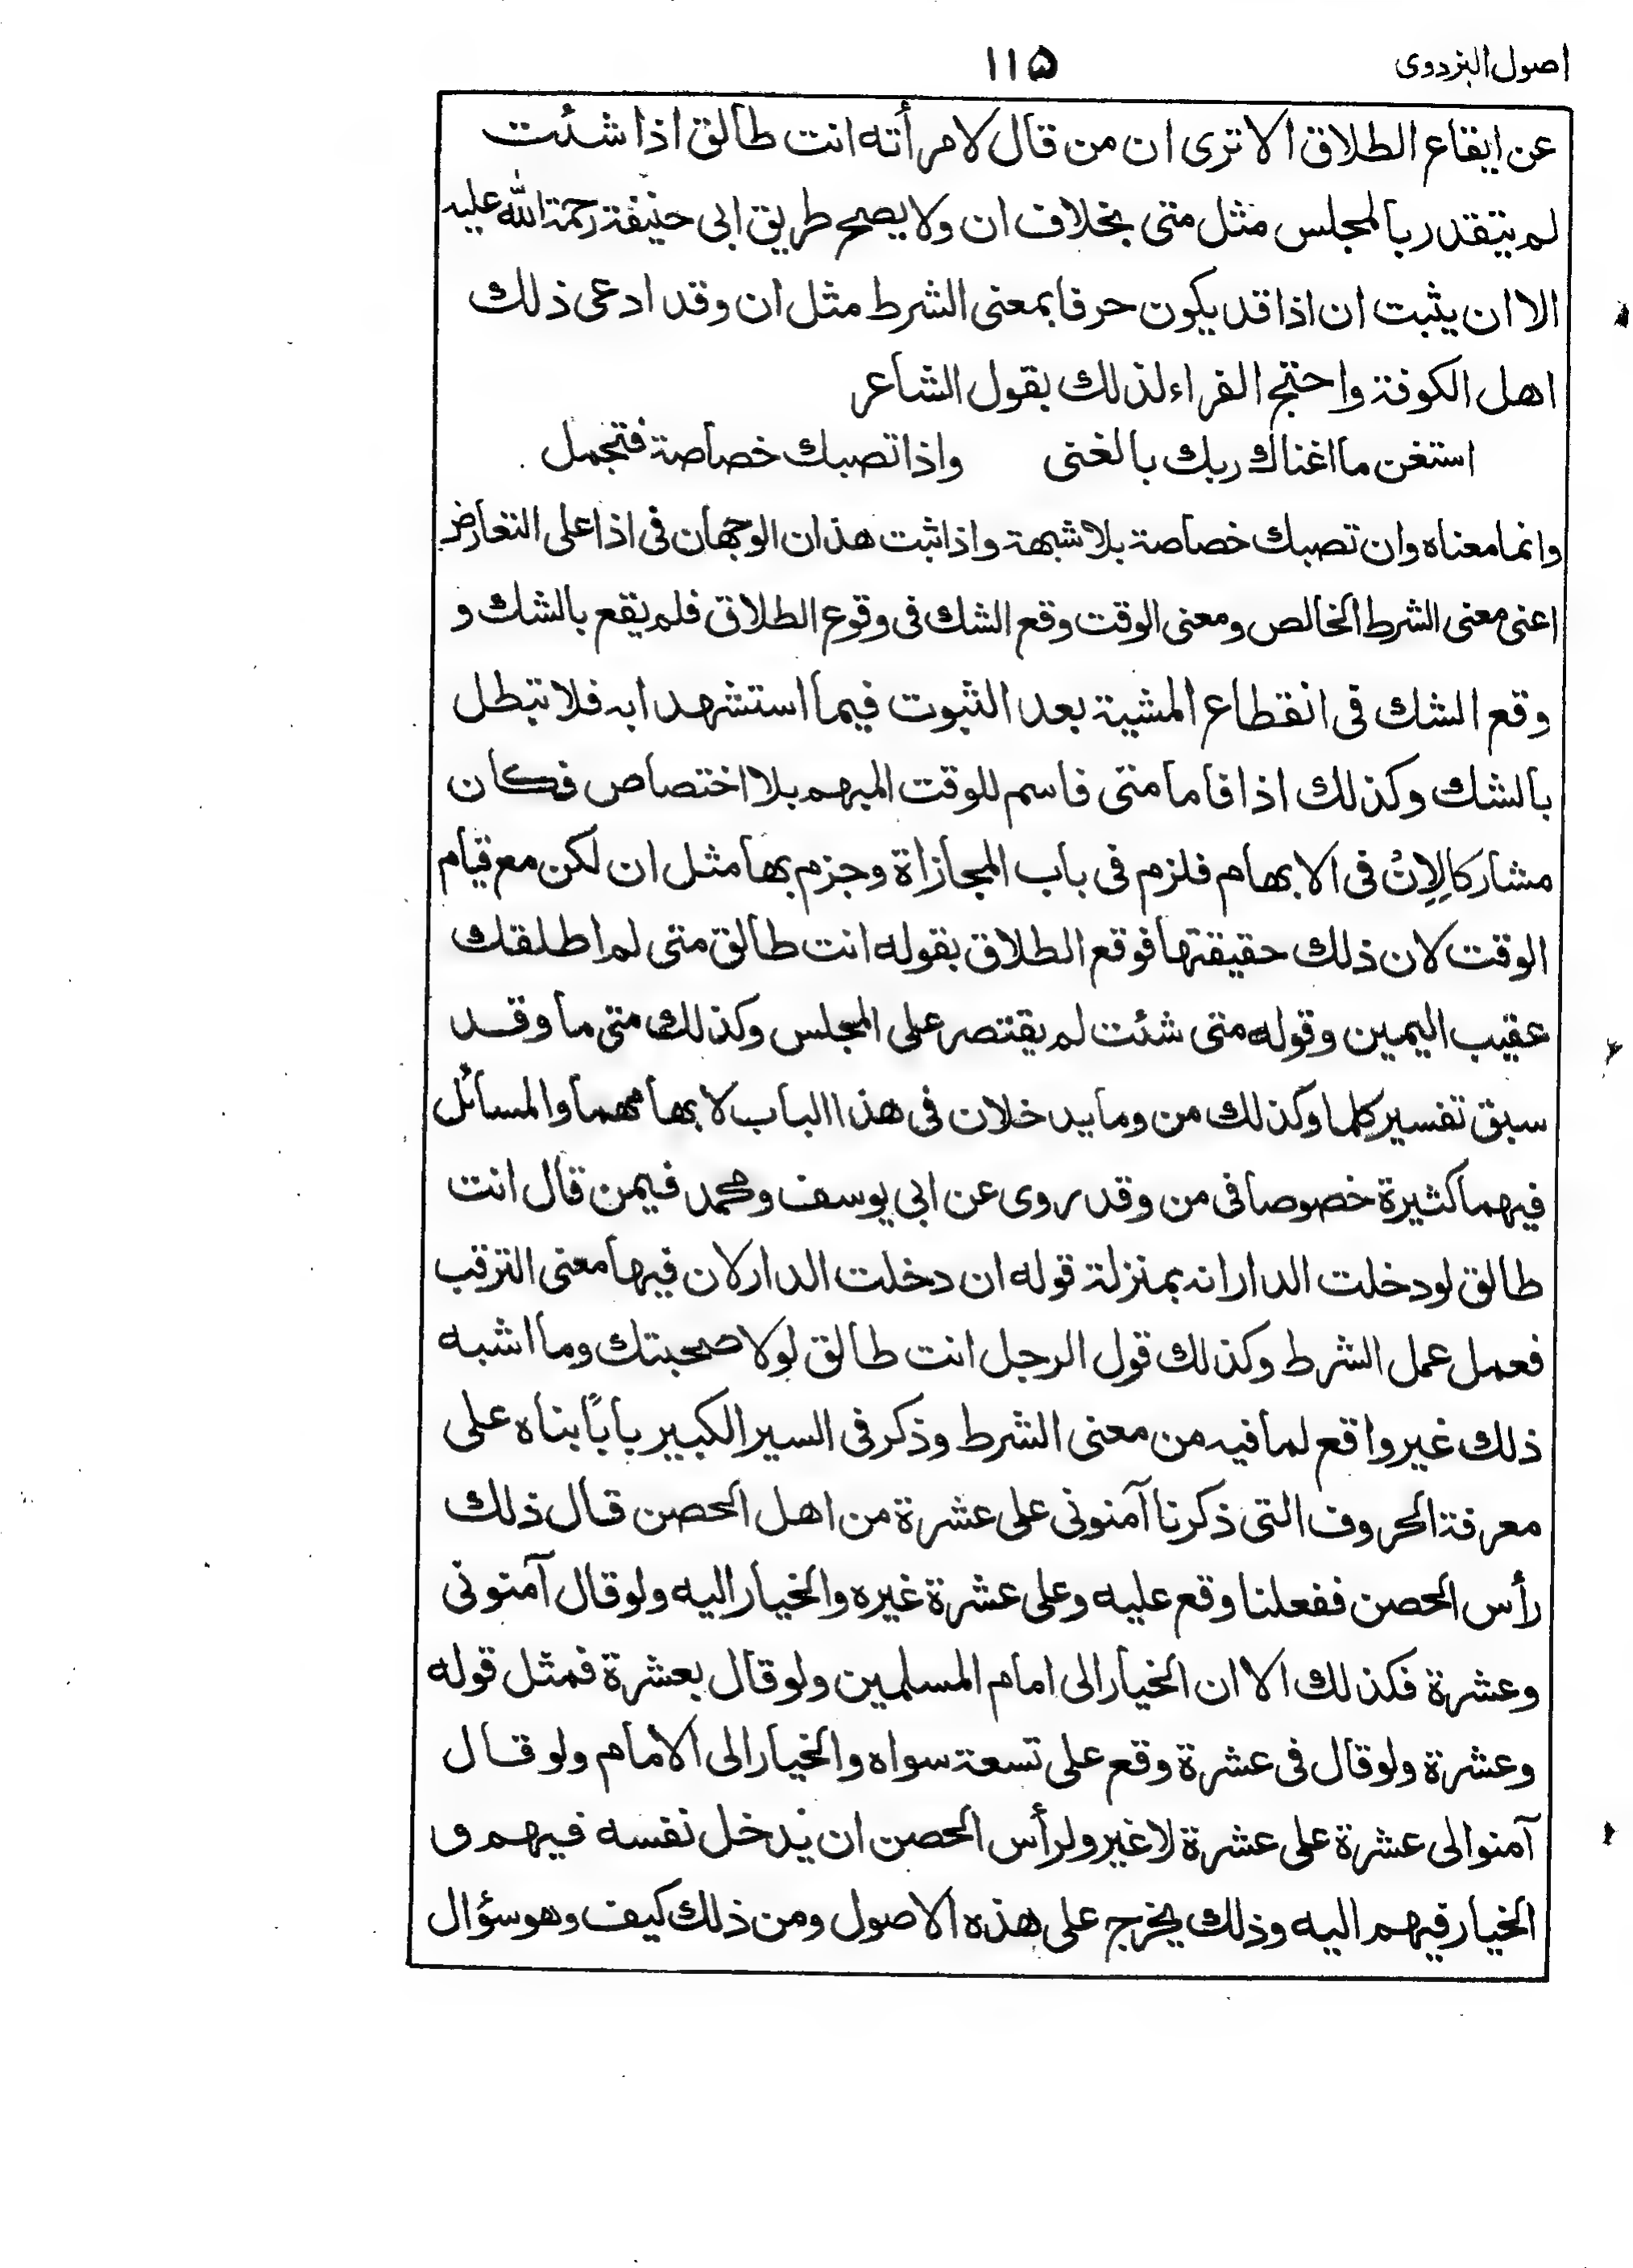 اصول البزدوی
۱۱۵
عن ايقاع الطلاق الا ترى ان من قال لامرأته انت طالق اذا شئت
لم يتقدر بالمجلس مثل متى بخلاف ان ولا يصح طريق ابى حنيفة رحمة الله عليه
الا ان يثبت ان اذا قد يكون حرفا بمعنى الشرط مثل ان وقد ادعى ذلك
اهل الكوفة واحتج الفراء لذلك بقول الشاعر
استغن ما اغناك ربك بالغنى واذا تصبك خصاصة فتجمل
وانما معناه وان تصبك خصاصة بلا شبهة واذا ثبت هذان الوجهان فى اذا على التعارض
اعنى معنى الشرط الخالص ومعنى الوقت وقع الشك فى وقوع الطلاق فلم يقع بالشك و
وقع الشك فى انقطاع المشية بعد الثبوت فيما استشهدا به فلا تبطل
بالشك وكذلك اذا فاما متى فاسم للوقت المبهم بلا اختصاص فكان
مشاركا لِاِنْ فى الابهام فلزم فى باب المجازاة وجزم بها مثل ان لكن مع قيام
الوقت لان ذلك حقيقتها فوقع الطلاق بقوله انت طالق متى لم اطلقك
عقيب اليمين وقوله متى شئت لم يقتصر على المجلس وكذلك متى ما وقد
سبق تفسير كلما وكذلك من وما يدخلان فى هذا الباب لابهامهما والمسائل
فيهما كثيرة خصوصا فى من وقد روى عن ابي يوسف ومحمد فيمن قال انت
طالق لو دخلت الدار انه بمنزلة قوله ان دخلت الدار لان فيها معنى الترقب
فعمل عمل الشرط وكذلك قول الرجل انت طالق لولا صحبتك وما اشبه
ذلك غير واقع لما فيه من معنى الشرط وذكر فى السير الكبير باباً بناه على
معرفة الحروف التى ذكرنا آمنونى على عشرة من اهل الحصن قال ذلك
رأس الحصن ففعلنا وقع عليه وعلى عشرة غيره والخيار اليه ولو قال آمنونى
وعشرة فكذلك الا ان الخيار الى امام المسلمين ولو قال بعشرة فمثل قوله
وعشرة ولو قال فى عشرة وقع على تسعة سواه والخيار الى الامام ولو قال
آمنوا لى عشرة على عشرة لا غير ولرأس الحصن ان يدخل نفسه فيهم و
الخيار فيهم اليه وذلك يخرج على هذه الاصول ومن ذلك كيف وهو سؤال